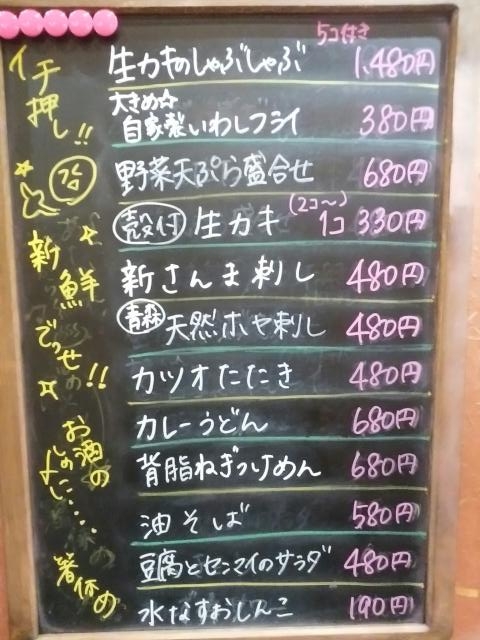 イチ押し!!
新鮮でっせ!!
お酒の
箸休め
5コ付き
生カキのしゃぶしゃぶ 1,480円
大きめ☆
自家製いわしフライ 380円
野菜天ぷら盛合せ 680円
殻付 生カキ (2コ〜) 1コ 330円
新さんま刺し 480円
青森 天然ホヤ刺し 480円
カツオたたき 480円
カレーうどん 680円
背脂ねぎつけめん 680円
油そば 580円
豆腐とセンマイのサラダ 480円
水なすおしんこ 190円